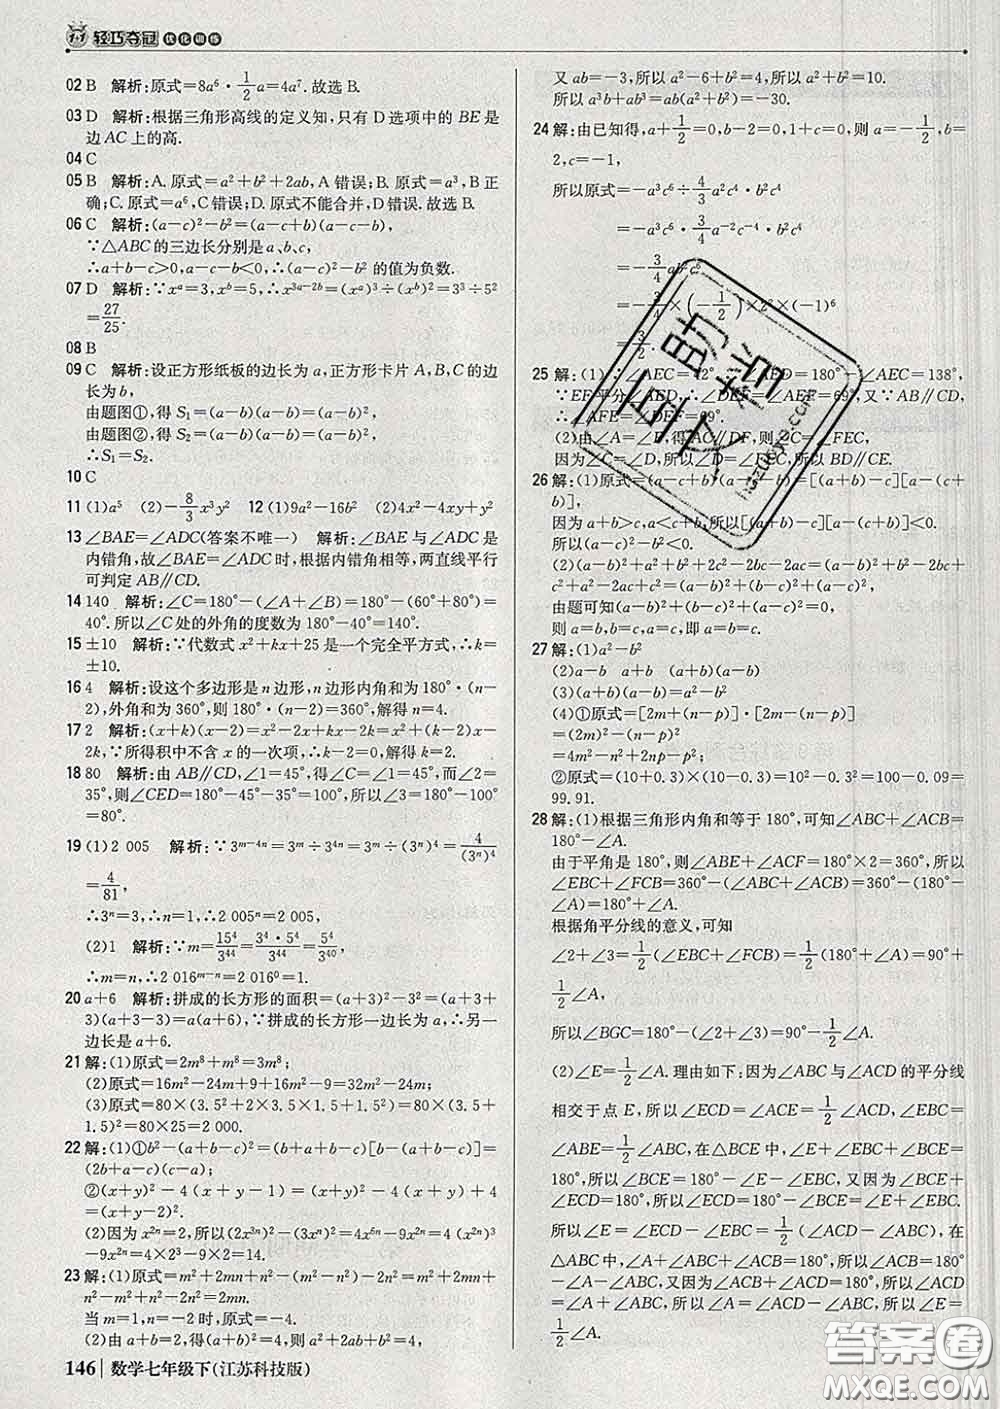 轻巧夺冠 优化训练
02 B 解析:原式=8a⁶·1/2a=4a⁷.故选 B.
03 D 解析:根据三角形高线的定义知,只有 D 选项中的 BE 是
边 AC 上的高.
04 C
05 B 解析:A.原式=a²+b²+2ab,A 错误;B.原式=a³,B 正
确;C.原式=a⁶,C 错误;D.原式不能合并,D 错误.故选 B.
06 C 解析:(a-c)²-b²=(a-c+b)(a-c-b),
∵△ABC 的三边长分别是 a、b、c,
∴a+b-c>0,a-c-b<0,∴(a-c)²-b² 的值为负数.
07 D 解析:∵xᵃ=3,xᵇ=5,∴x³ᵃ⁻²ᵇ=(xᵃ)³÷(xᵇ)²=3³÷5²
=27/25.
08 B
09 C 解析:设正方形纸板的边长为 a,正方形卡片 A,B,C 的边
长为 b,
由题图①,得 S₁=(a-b)(a-b)=(a-b)².
由题图②,得 S₂=(a-b)(a-b)=(a-b)²,
∴S₁=S₂.
10 C
11 (1)a⁵ (2)-8/3x³y² 12 (1)9a²-16b² (2)4x²-4xy+y²
13 ∠BAE=∠ADC(答案不唯一) 解析:∠BAE 与∠ADC 是
内错角,故∠BAE=∠ADC 时,内错角相等,两直线平行
可判定 AB∥CD.
14 140 解析:∠C=180°-(∠A+∠B)=180°-(60°+80°)=
40°.所以∠C 处的外角的度数为 180°-40°=140°.
15 ±10 解析:∵代数式 x²+kx+25 是一个完全平方式,∴k=
±10.
16 4 解析:设这个多边形是 n 边形,n 边形内角和为 180°·(n-
2),外角和为 360°,则 180°·(n-2)=360°,解得 n=4.
17 2 解析:(x+k)(x-2)=x²-2x+kx-2k=x²+(k-2)x-
2k,∵所得积中不含 x 的一次项,∴k-2=0,解得 k=2.
18 80 解析:由 AB∥CD,∠1=45°,得∠C=∠1=45°,而∠2=
35°,则∠CED=180°-45°-35°=100°,所以∠3=180°-100°
=80°.
19 (1)2 005 解析:∵3ᵐ⁻⁴ⁿ=3ᵐ÷3⁴ⁿ=3ᵐ÷(3ⁿ)⁴=4/(3ⁿ)⁴
=4/81,
∴3ⁿ=3,∴n=1,∴2 005ⁿ=2 005.
(2)1 解析:∵m=15⁴/3⁴⁴=3⁴·5⁴/3⁴⁴=5⁴/3⁴⁰,
∴m=n,∴2 016ᵐ⁻ⁿ=2 016⁰=1.
20 a+6 解析:拼成的长方形的面积=(a+3)²-3²=(a+3+
3)(a+3-3)=a(a+6),∵拼成的长方形一边长为 a,∴另一
边长是 a+6.
21 解:(1)原式=2m⁸+m⁸=3m⁸;
(2)原式=16m²-24m+9+24m=16m²+9;
(3)原式=80×(3.5²+2×3.5×1.5+1.5²)=80×(3.5+
1.5)²=80×25=2 000.
22 解:(1)①b²-(a+b-c)²=(b+a+b-c)[b-(a+b-c)]=
(2b+a-c)(c-a);
②(x+y)²-4(x+y-1)=(x+y)²-4(x+y)+4
=(x+y-2)²;
(2)因为 x²ⁿ=2,所以(2x³ⁿ)²-(3xⁿ)²=4x⁶ⁿ-9x²ⁿ=4(x²ⁿ)³
-9x²ⁿ=4×2³-9×2=14.
23 解:(1)原式=m²+2mn+n²-(m²-2mn+n²)-2m²+2n²=
m²+2mn+n²-m²+2mn-n²-2m²+2n²=4mn-2m²+2n².
当 m=1,n=-2 时,原式=-4.
(2)由 a+b=2,得(a+b)²=4,所以 a²+2ab+b²=4.
146 数学七年级下(江苏科技版)
又 ab=-3,所以 a²-6+b²=4,所以 a²+b²=10.
所以 a³b+ab³=ab(a²+b²)=-30.
24 解:由已知得,a+1/2=0,b-2=0,1+c=0,则 a=-1/2,b=
2,c=-1.
所以原式=-a³c⁶÷4/3a²c⁴·b²c⁴
=-a³c⁶·3/4a⁻²c⁻⁴·b²c⁴
=-3/4ab²c⁶
=-3/4×(-1/2)×2²×(-1)⁶
=3/2.
25 解:(1)∵∠AEC=42°,∴∠AED=180°-∠AEC=138°,
∵EF 平分∠AED,∴∠DEF=1/2∠AEF=69°,又∵AB∥CD,
∴∠AFE=∠DEF=69°.
(2)由∠A=∠F,得 AC∥DF,则∠C=∠FEC,
因为∠C=∠D,所以∠D=∠FEC,所以 BD∥CE.
26 解:(1)原式=(a-c+b)(a-c-b)=[(a+b)-c][a-(c+
b)],
因为 a+b>c,a<c+b,所以[(a+b)-c][a-(c+b)]<0.
所以(a-c)²-b²<0.
(2)(2)a²+a²+b²+b²+2c²-2ab-2bc-2ac=(a²+b²-2ab)+(b²-2bc+
c²+a²-2ac+c²=(a-b)²+(b-c)²+(a-c)²;
由题可知(a-b)²+(b-c)²+(a-c)²=0,
则 a=b,b=c,a=c,即 a=b=c.
27 解:(1)a²-b²
(2)a-b a+b (a+b)(a-b)
(3)(a+b)(a-b)=a²-b²
(4)①原式=[2m+(n-p)]·[2m-(n-p)]
=(2m)²-(n-p)²
=4m²-n²+2np-p²;
②原式=(10+0.3)×(10-0.3)=10²-0.3²=100-0.09=
99.91.
28 解:(1)根据三角形内角和等于 180°,可知∠ABC+∠ACB=
180°-∠A.
由于平角是 180°,则∠ABE+∠ACF=180°×2=360°,所以
∠EBC+∠FCB=360°-(∠ABC+∠ACB)=360°-
(180°-∠A)=180°+∠A.
根据角平分线的意义,可知
∠2+∠3=1/2(∠EBC+∠FCB)=1/2(180°+∠A)=90°+
1/2∠A,
所以∠BGC=180°-(∠2+∠3)=90°-1/2∠A.
(2)∠E=1/2∠A.理由如下:因为∠ABC 与∠ACD 的平分线
相交于点 E,所以∠ECD=∠ACE=1/2∠ACD,∠EBC=
∠ABE=1/2∠ABC,在△BCE 中,∠E+∠EBC+∠BCE=
180°,所以∠BCE=180°-∠E-∠EBC,又因为∠BCE+
∠ECD=180°,所以∠ECD=180°-∠BCE=∠E+∠EBC.
所以∠E=∠ECD-∠EBC=1/2(∠ACD-∠ABC),在
△ABC 中,∠A+∠ABC+∠ACB=180°,所以∠ACB=180°
-∠A-∠ABC,又因为∠ACD+∠ACB=180°,所以∠ACD
=∠A+∠ABC,所以∠A=∠ACD-∠ABC,所以∠E=
1/2∠A.
互助文档
hszuoye.com
答案圈
MXQE.COM